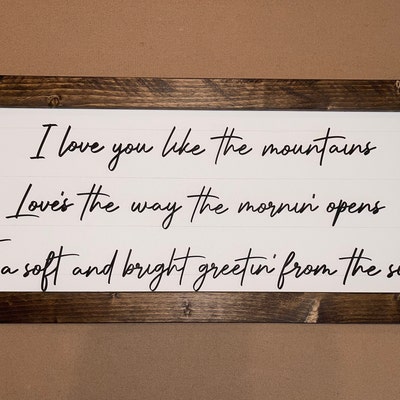 I love you like the mountains
Love's the way the mornin' opens
a soft and bright greetin' from the